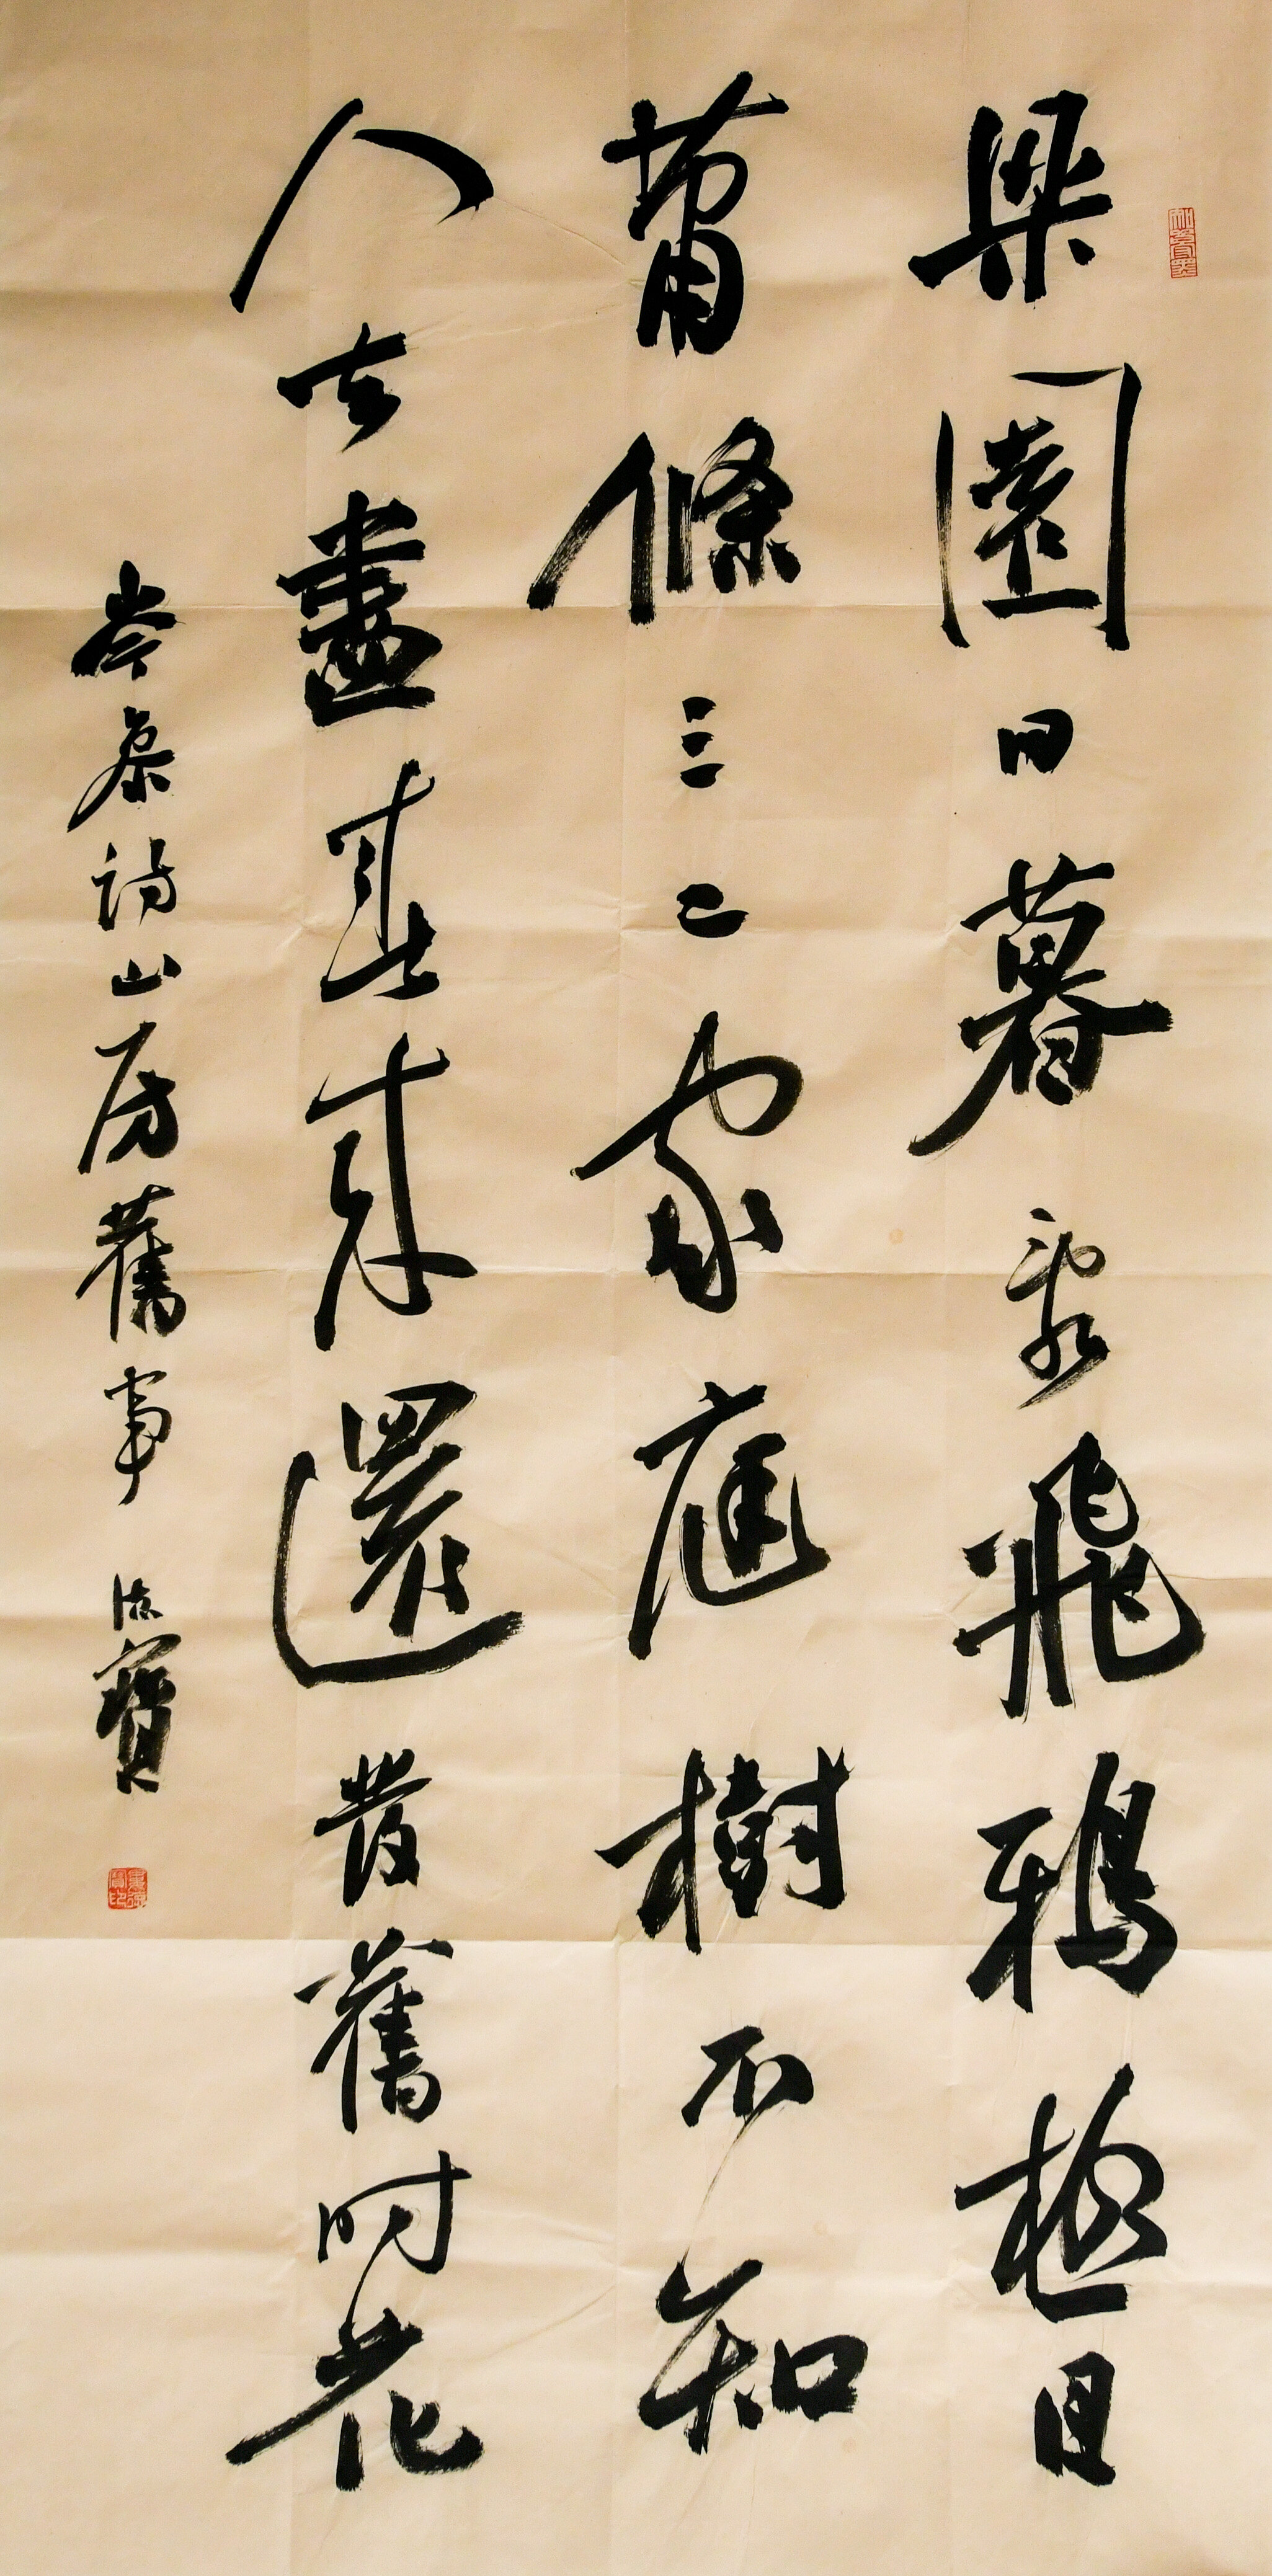 梁園日暮亂飛鴉極目
蕭條三二家庭樹不知
人去盡春來還發舊時花
岑參詩山房舊事 流寶